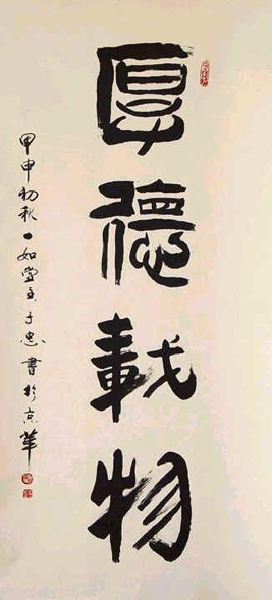 厚德載物
甲申初秋一如堂主忠書於京華